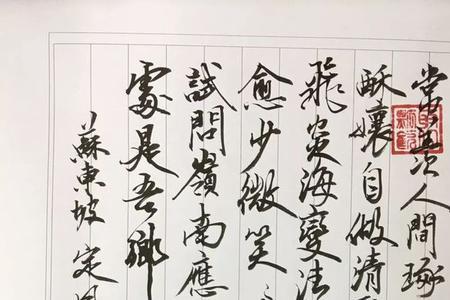 常羨人間琢
酥孃自做清
飛炎海變
愈少微笑
試問嶺南應
處是吾鄉
蘇東坡 定